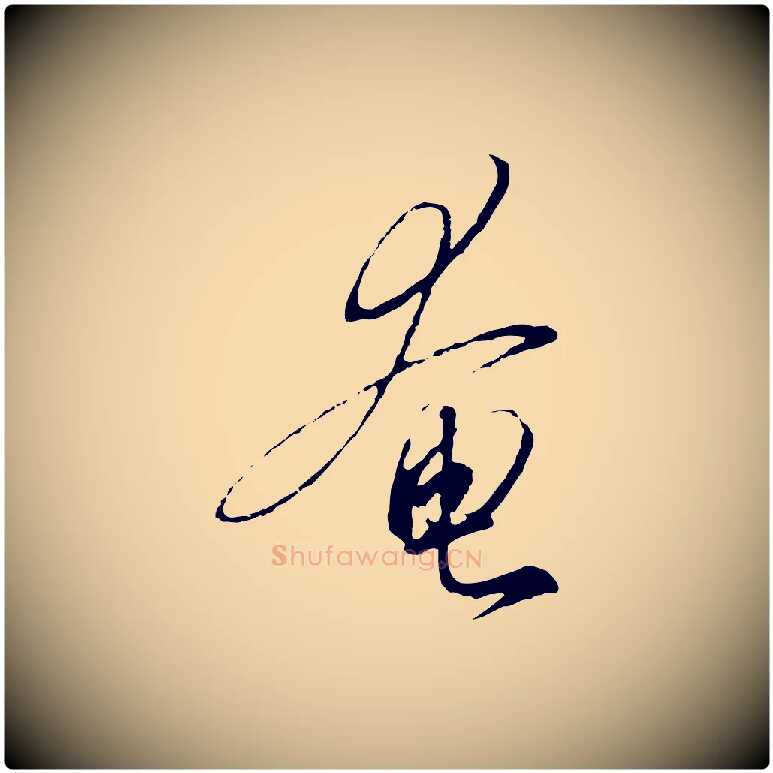 奄
Shufawang.CN